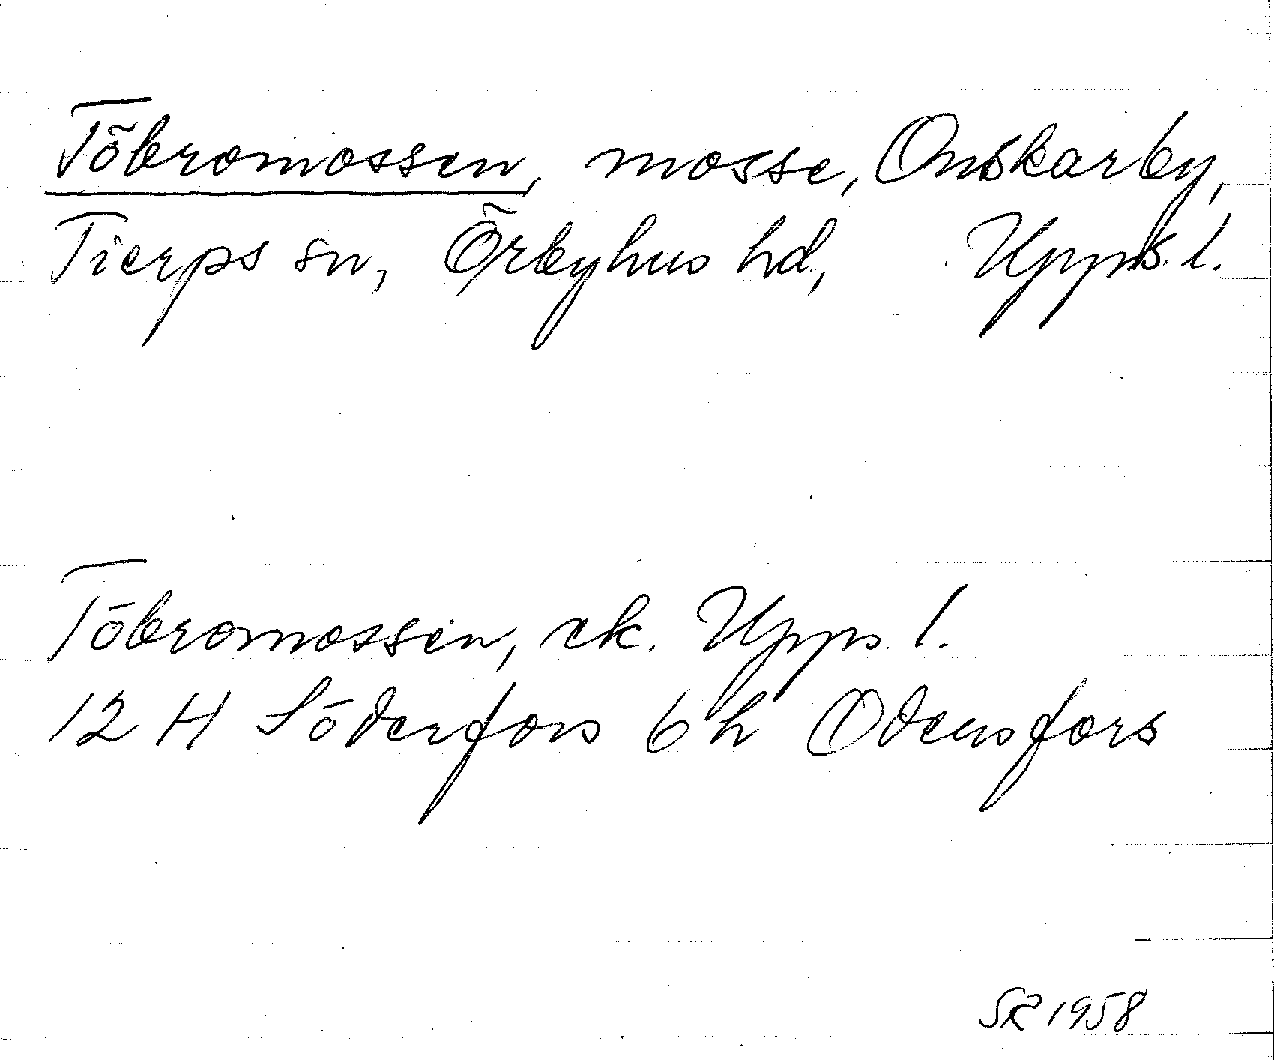 Töbromossen, mosse, Onskarby,
Tierps sn, Örbyhus hd, Upps. l.
Töbromossen, ek. Upps. l.
12 H Söderfors 6 h Odensfors
SR 1958